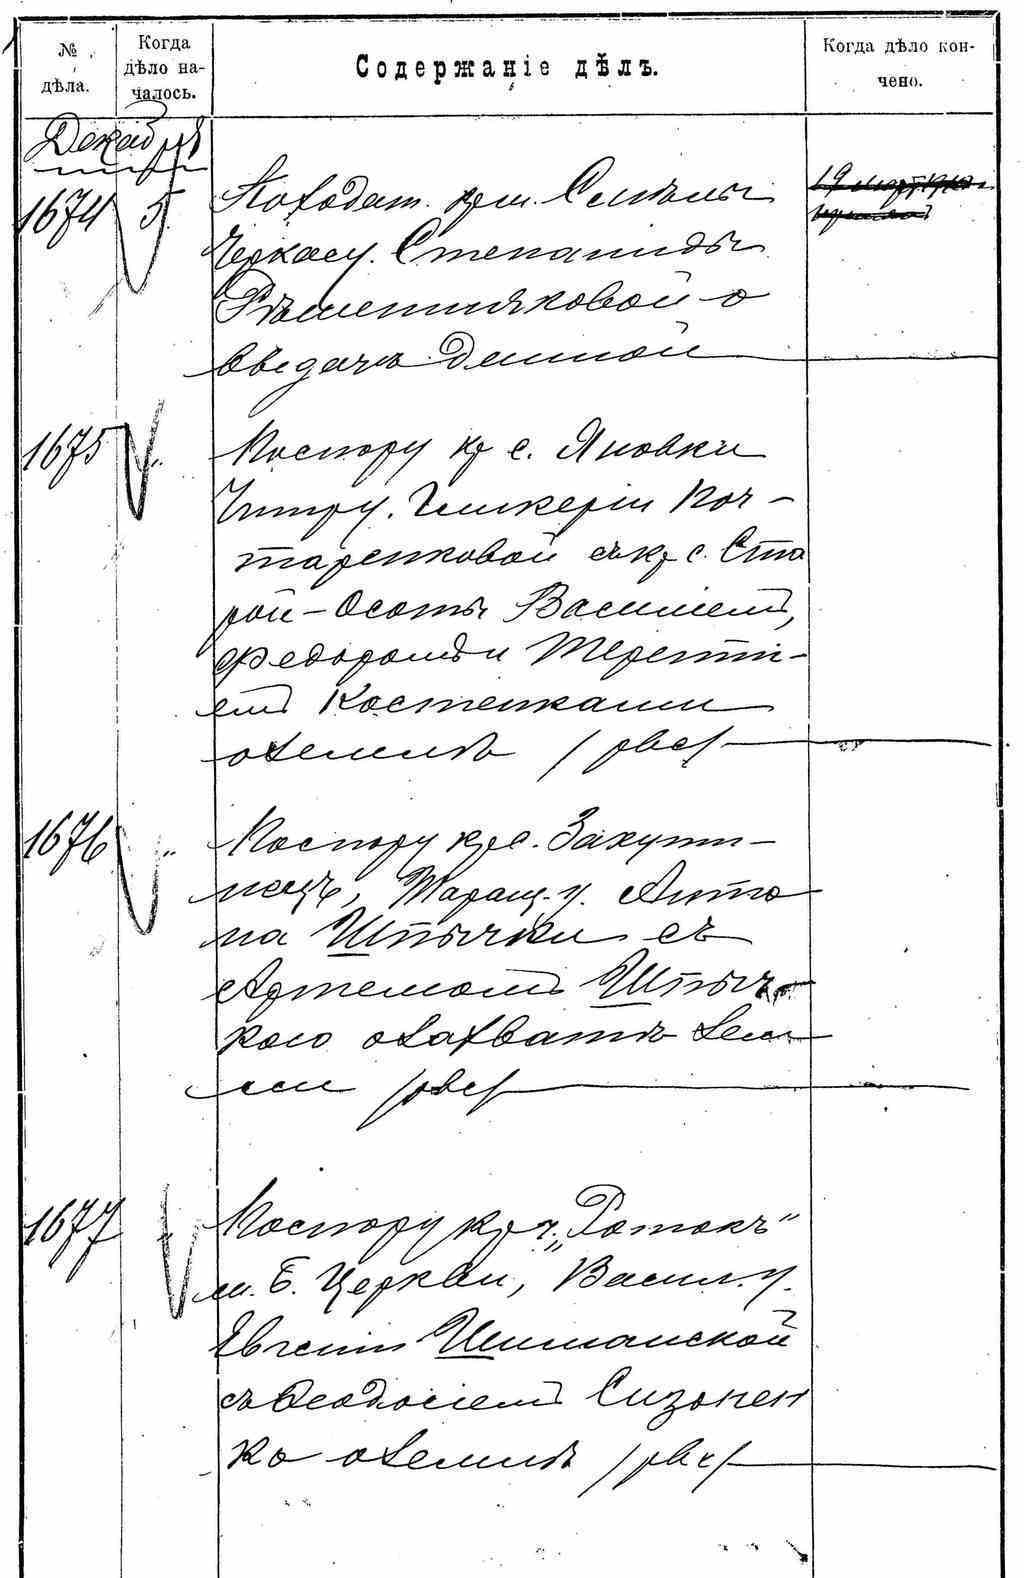 № дѣла.
Когда дѣло началось.
Содержаніе дѣлъ.
Когда дѣло кончено.
Декабря
1674 5. По ходат. кр. м. Смѣлы
Черкасс. у. Степаниды
Рѣшетняковой о
выдачѣ данной
1675 " По спору кр. с. Яновки
Чигир. у. Гликеріи Коч-
таренковой съ кр. с. Ста
рой-Осоты Василіемъ,
Федоромъ и Терентi-
емъ Костенками
о землѣ /рвс/
1676 " По спору кр. с. Закути-
нецъ, Таращ. у. Анто
на Шпычки съ
Артемомъ Шпыч-
кою о захватѣ зем
ли /рвс/
1677 " По спору кр. ч. „Ротокъ"
м. Б. Церкви, Васил. у.
Евгеніи Шиманской
съ Феодосіемъ Сизонен
ко о землѣ /рвс/